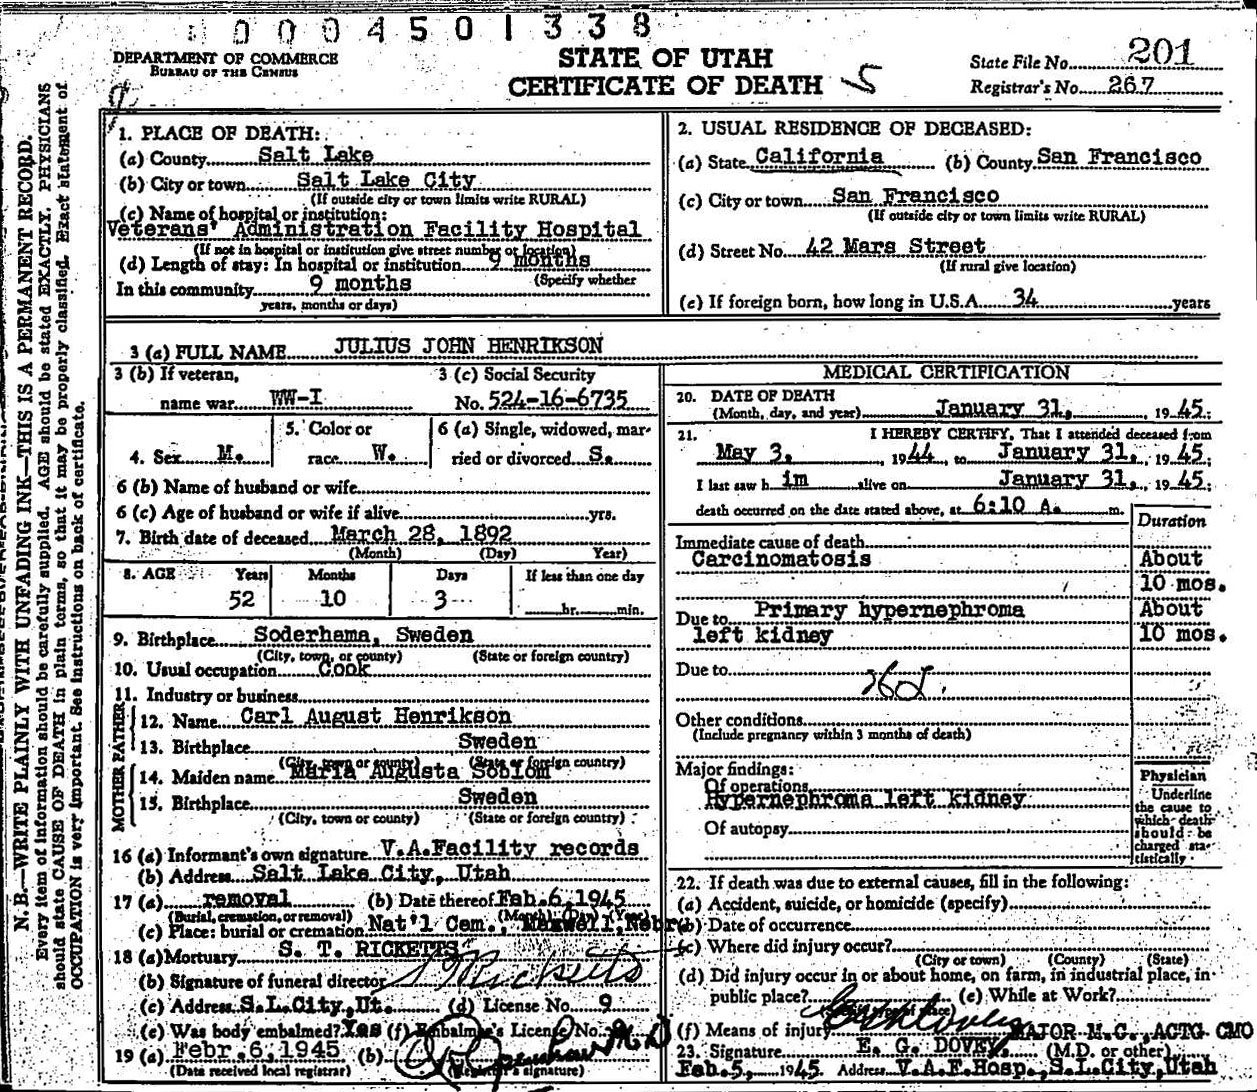 0004501338
DEPARTMENT OF COMMERCE
BUREAU OF THE CENSUS
STATE OF UTAH
CERTIFICATE OF DEATH
State File No. 201
Registrar's No. 267
N. B.—WRITE PLAINLY WITH UNFADING INK—THIS IS A PERMANENT RECORD.
Every item of information should be carefully supplied. AGE should be stated EXACTLY. PHYSICIANS
should state CAUSE OF DEATH in plain terms, so that it may be properly classified. Exact statement of
OCCUPATION is very important. See instructions on back of certificate.
1. PLACE OF DEATH:
(a) County Salt Lake
(b) City or town Salt Lake City
(If outside city or town limits write RURAL)
(c) Name of hospital or institution:
Veterans' Administration Facility Hospital
(If not in hospital or institution give street number or location)
(d) Length of stay: In hospital or institution 9 months
(Specify whether
In this community 9 months
years, months or days)
2. USUAL RESIDENCE OF DECEASED:
(a) State California (b) County San Francisco
(c) City or town San Francisco
(If outside city or town limits write RURAL)
(d) Street No. 42 Mars Street
(If rural give location)
(e) If foreign born, how long in U.S.A. 34 years
3 (a) FULL NAME JULIUS JOHN HENRIKSON
3 (b) If veteran,
name war WW-I
3 (c) Social Security
No. 524-16-6735
4. Sex M.
5. Color or
race W.
6 (a) Single, widowed, mar-
ried or divorced S.
6 (b) Name of husband or wife
6 (c) Age of husband or wife if alive yrs.
7. Birth date of deceased March 28, 1892
(Month) (Day) Year)
8. AGE Years Months Days If less than one day
52 10 3 hr. min.
9. Birthplace Soderhama, Sweden
(City, town, or county) (State or foreign country)
10. Usual occupation Cook
11. Industry or business
FATHER
12. Name Carl August Henrikson
13. Birthplace Sweden
(City, town or county) (State or foreign country)
MOTHER
14. Maiden name Maria Augusta Soblom
15. Birthplace Sweden
(City, town or county) (State or foreign country)
16 (a) Informant's own signature V.A.Facility records
(b) Address Salt Lake City, Utah
17 (a) removal (b) Date thereof Feb.6,1945
(Burial, cremation, or removal) (Month) (Day) (Year)
(c) Place: burial or cremation Nat'l Cem., Maxwell, Nebr
18 (a) Mortuary S. T. RICKETTS
(b) Signature of funeral director S T Ricketts
(c) Address S.L.City,Ut. (d) License No. 9
(e) Was body embalmed? Yes (f) Embalmer's License No.
19 (a) Febr.6,1945 (b) M.D
(Date received local registrar) (Registrar's signature)
MEDICAL CERTIFICATION
20. DATE OF DEATH
(Month, day, and year) January 31, 1945.
21. I HEREBY CERTIFY, That I attended deceased from
May 3, 1944, to January 31, 1945.
I last saw him alive on January 31, 1945.
death occurred on the date stated above, at 6:10 A. m.
Duration
Immediate cause of death
Carcinomatosis About
10 mos.
Due to Primary hypernephroma About
left kidney 10 mos.
Due to
Other conditions
(Include pregnancy within 3 months of death)
Major findings:
Of operations
Hypernephroma left kidney
Of autopsy
Physician
Underline
the cause to
which death
should be
charged sta-
tistically.
22. If death was due to external causes, fill in the following:
(a) Accident, suicide, or homicide (specify)
(b) Date of occurrence
(c) Where did injury occur?
(City or town) (County) (State)
(d) Did injury occur in or about home, on farm, in industrial place, in
public place? (e) While at Work?
(f) Means of injury MAJOR M.C., ACTG CMO
23. Signature E. G. DOVEY. (M.D. or other)
Feb.5, 1945. Address V.A.F.Hosp.,S.L.City,Utah